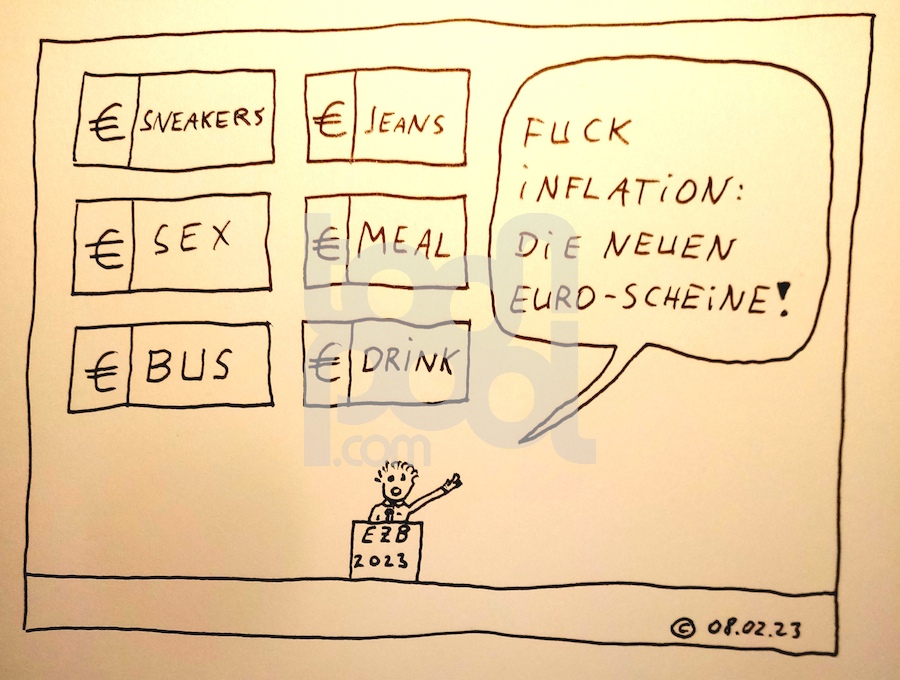 € SNEAKERS
€ JEANS
€ SEX
€ MEAL
€ BUS
€ DRINK
FUCK
INFLATION:
DIE NEUEN
EURO-SCHEINE!
EZB
2023
© 08.02.23
toonpool
.com